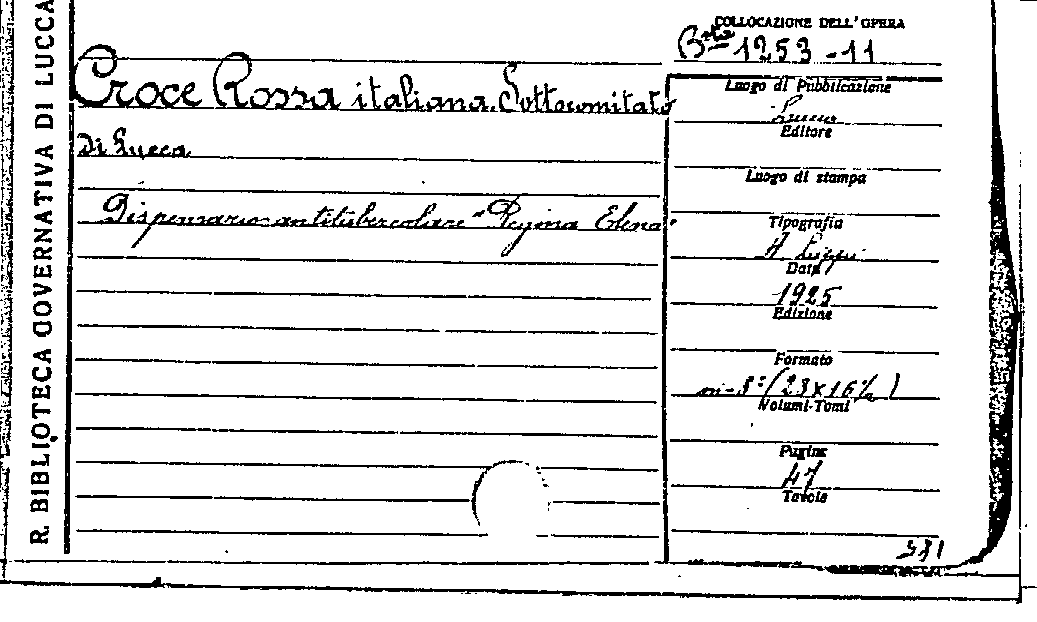 R. BIBLIOTECA GOVERNATIVA DI LUCCA
COLLOCAZIONE DELL'OPERA
Bta 1253-11
Croce Rossa italiana. Sottocomitato
di Lucca
Dispensario antitubercolare "Regina Elena"
Luogo di Pubblicazione
Lucca
Editore
Luogo di stampa
Tipografia
Data
1925
Edizione
Formato
in-8° (23x16½)
Volumi-Tomi
Pagine
47
Tavole